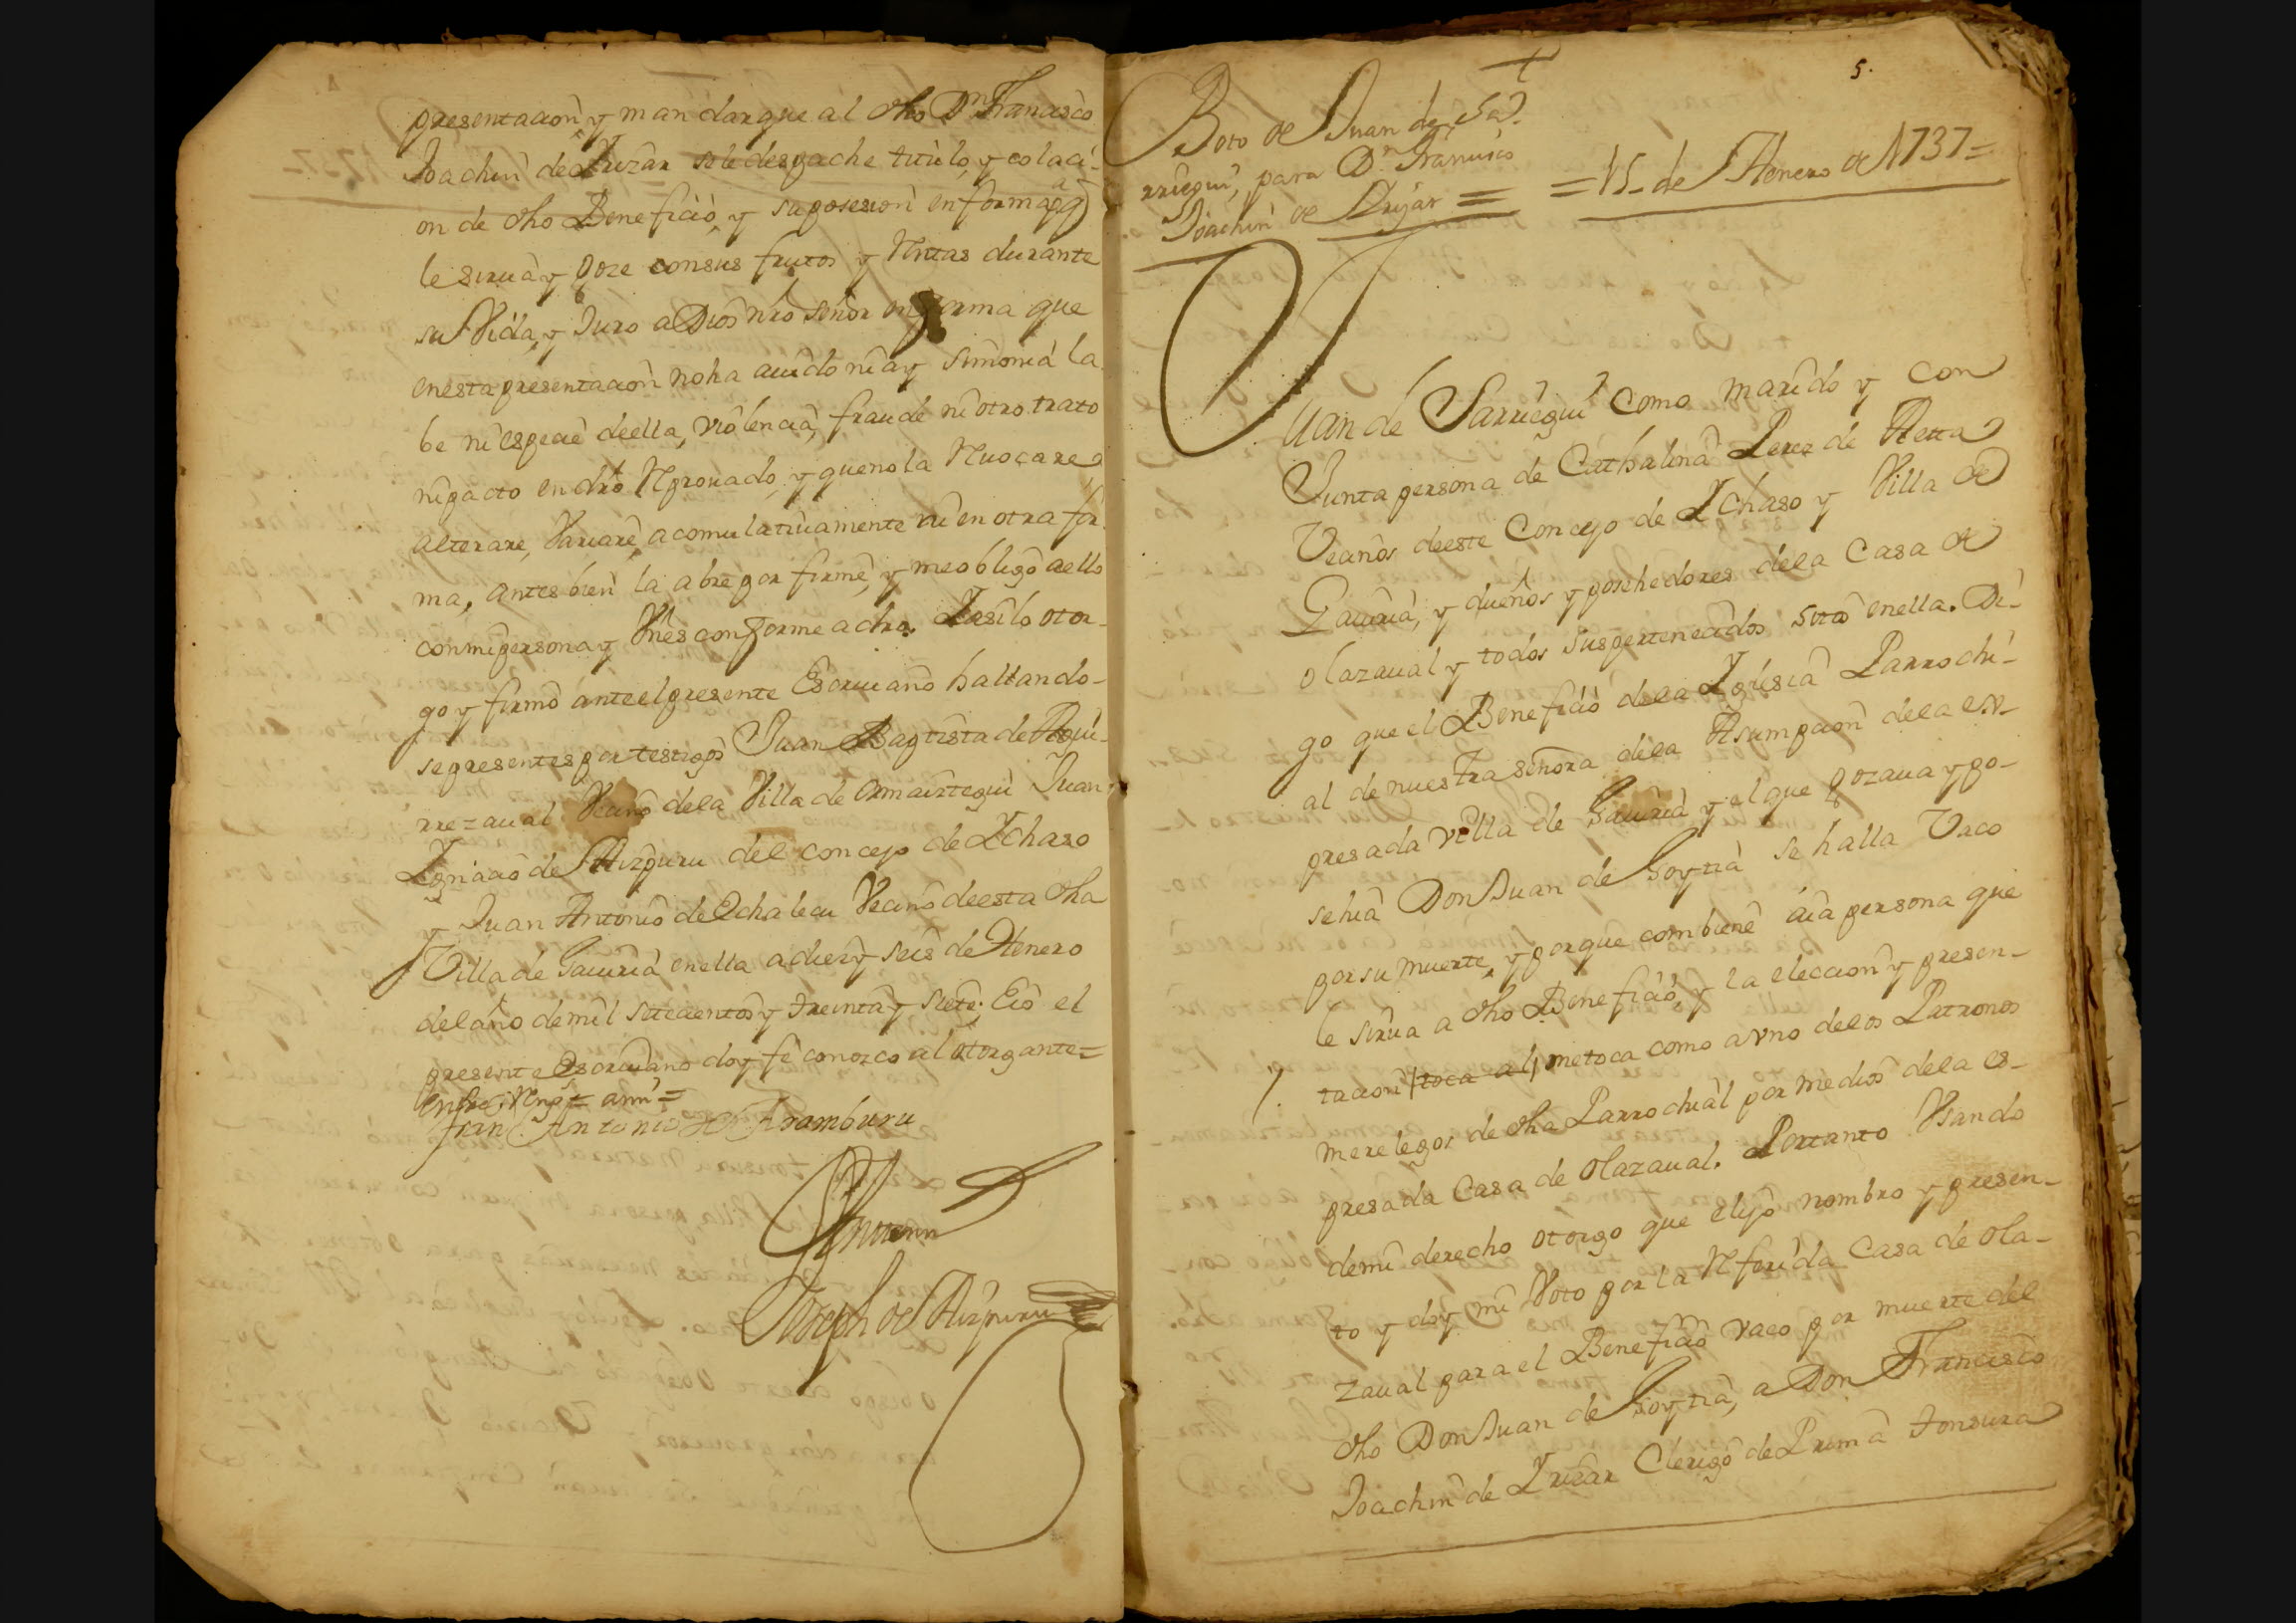 presentacion y mandar que al dho Dn Francisco
Joachin de Irizar sele despache titulo, y colaci-
on de dho Beneficio, y su posesion en forma pa q
le sirua y goze con sus frutos y Rentas durante
su Vida, y Juro a Dios nro señor en forma que
en esta presentacion no ha auido ni ay simonia la
be ni especie de ella, violencia, fraude ni otro trato
ni pacto en dro Reprouado, y que no la Reuocare
alterare, Variare, acomulatiuamente ni en otra for
ma, antes bien la abre por firme, y me obligo a ello
con mi persona y Vnes conforme a dro. Y asi lo otor-
go y firmo ante el presente Escriuano hallando-
se presentes por testigos Juan Baptista de Aqui-
rrezaual Vecino dela Villa de Ormaiztegui Juan
Ignacio de Aizpuru del concejo de Ichaso
y Juan Antonio de Echalecu Vecino de esta dha
Villa de Gauiria en ella a diez y seis de Henero
del año de mil setecientos y treinta y siete; E io el
presente Escriuano doy fe conozco al otorgante=
Entre Rengs= a mi=
Fran Antonio de Aramburu
Ante mi
Joseph de Aizpuru
5.
Boto de Juan de Sa
rriegui, para Dn Francisco
Joachin de Irizar =
= 15 de Henero de 1737=
Juan de Sarriegui como marido y con
Junta persona de Cathalina Perez de Aetta
Vecinos de este Concejo de Ichaso y Villa de
Gauiria, y dueños y poshedores dela Casa de
olazaual y todos sus pertenecidos sitos en ella. Di-
go que el Beneficio dela Iglesia Parrochi-
al de nuestra señora dela Asumpcion dela ex-
presada villa de Gauiria y el que gozaua y po-
sehia Don Juan de Goytia se halla Vaco
por su muerte, y porque combiene aia persona que
le sirua a dho Beneficio, y la eleccion y presen-
tacion toca al me toca como a vno delos Patronos
merelegos de dha Parrochial por medio dela es-
presada Casa de Olazaual. Portanto Vsando
de mi derecho otorgo que elijo nombro y presen-
to y doy mi Voto por la Referida Casa de ola-
zaual para el Beneficio vaco por muerte del
dho Don Juan de Goytia, a Don Francisco
Joachin de Irizar Clerigo de Prima tonsura